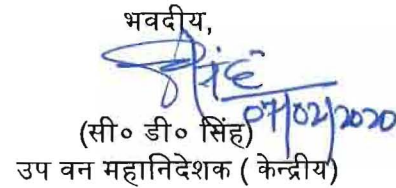 भवदीय,
07/02/2020
(सी० डी० सिंह)
उप वन महानिदेशक ( केन्द्रीय)